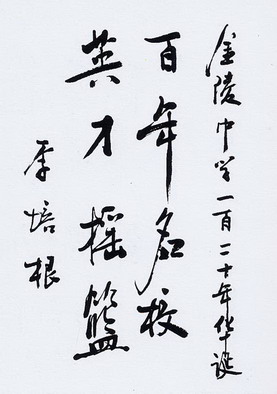 金陵中学一百二十年华诞
百年名校
英才摇篮
李培根